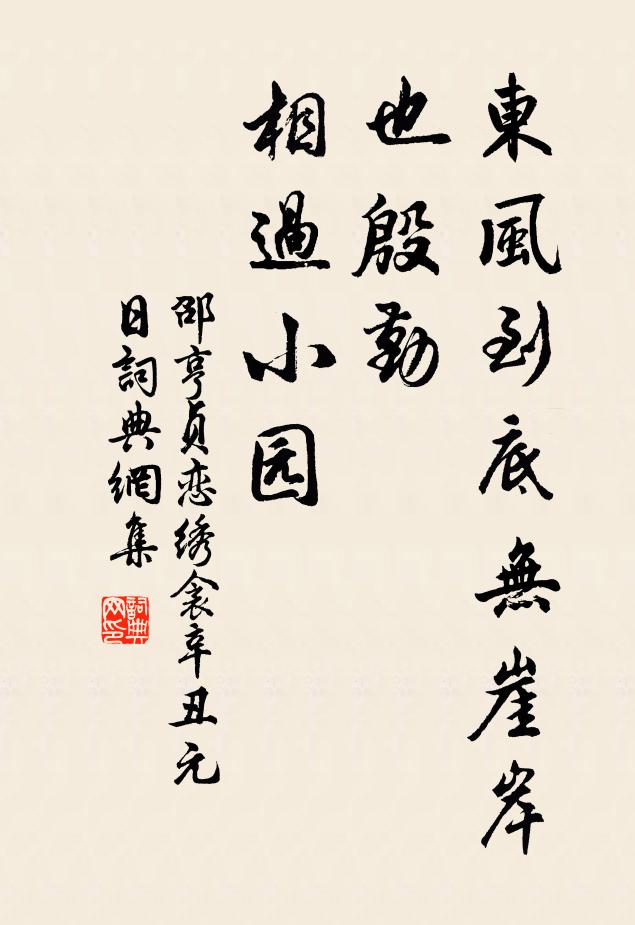 東風到底無崖岸
也殷勤
相過小园
邵亨貞恋绣衾辛丑元
日詞典網集
詞典网印